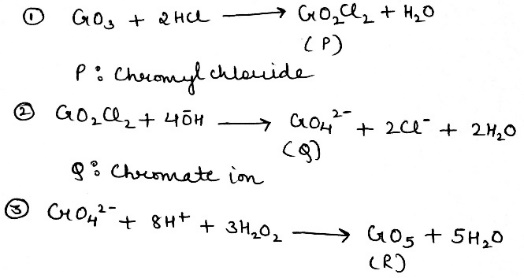 ① CrO₃ + 2HCl ⟶ CrO₂Cl₂ + H₂O
(P)
P : Chromyl chloride
② CrO₂Cl₂ + 4ŌH ⟶ CrO₄²⁻ + 2Cl⁻ + 2H₂O
(Q)
Q : Chromate ion
③ CrO₄²⁻ + 8H⁺ + 3H₂O₂ ⟶ CrO₅ + 5H₂O
(R)